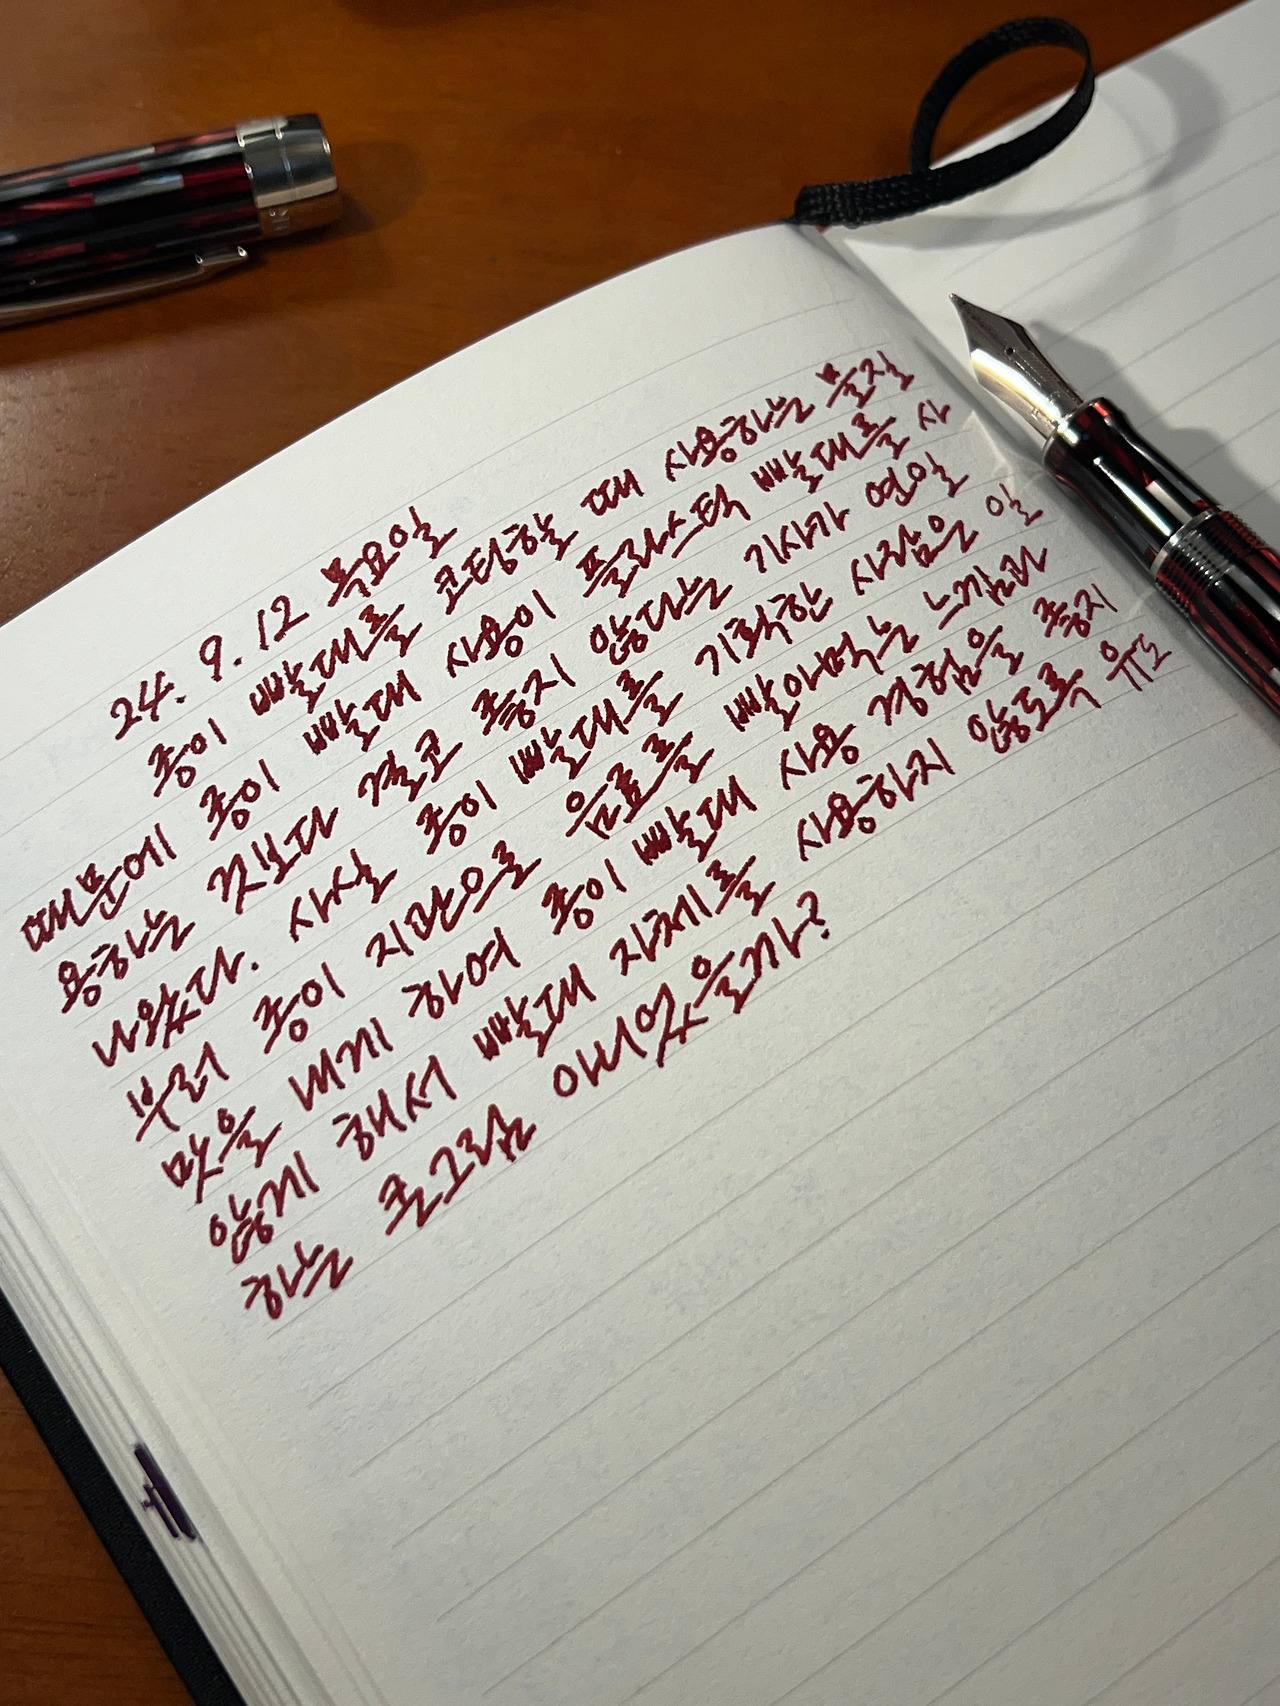 24. 9. 12 목요일
종이 빨대를 코팅할 때 사용하는 물질
때문에 종이 빨대 사용이 플라스틱 빨대를 사
용하는 것보다 결코 좋지 않다는 기사가 연일
나왔다. 사실 종이 빨대를 기획한 사람은 일
부러 종이 지관으로 음료를 빨아먹는 느낌과
맛을 내게 하여 종이 빨대 사용 경험을 좋지
않게 해서 빨대 자체를 사용하지 않도록 유도
하는 큰그림 아니었을까?